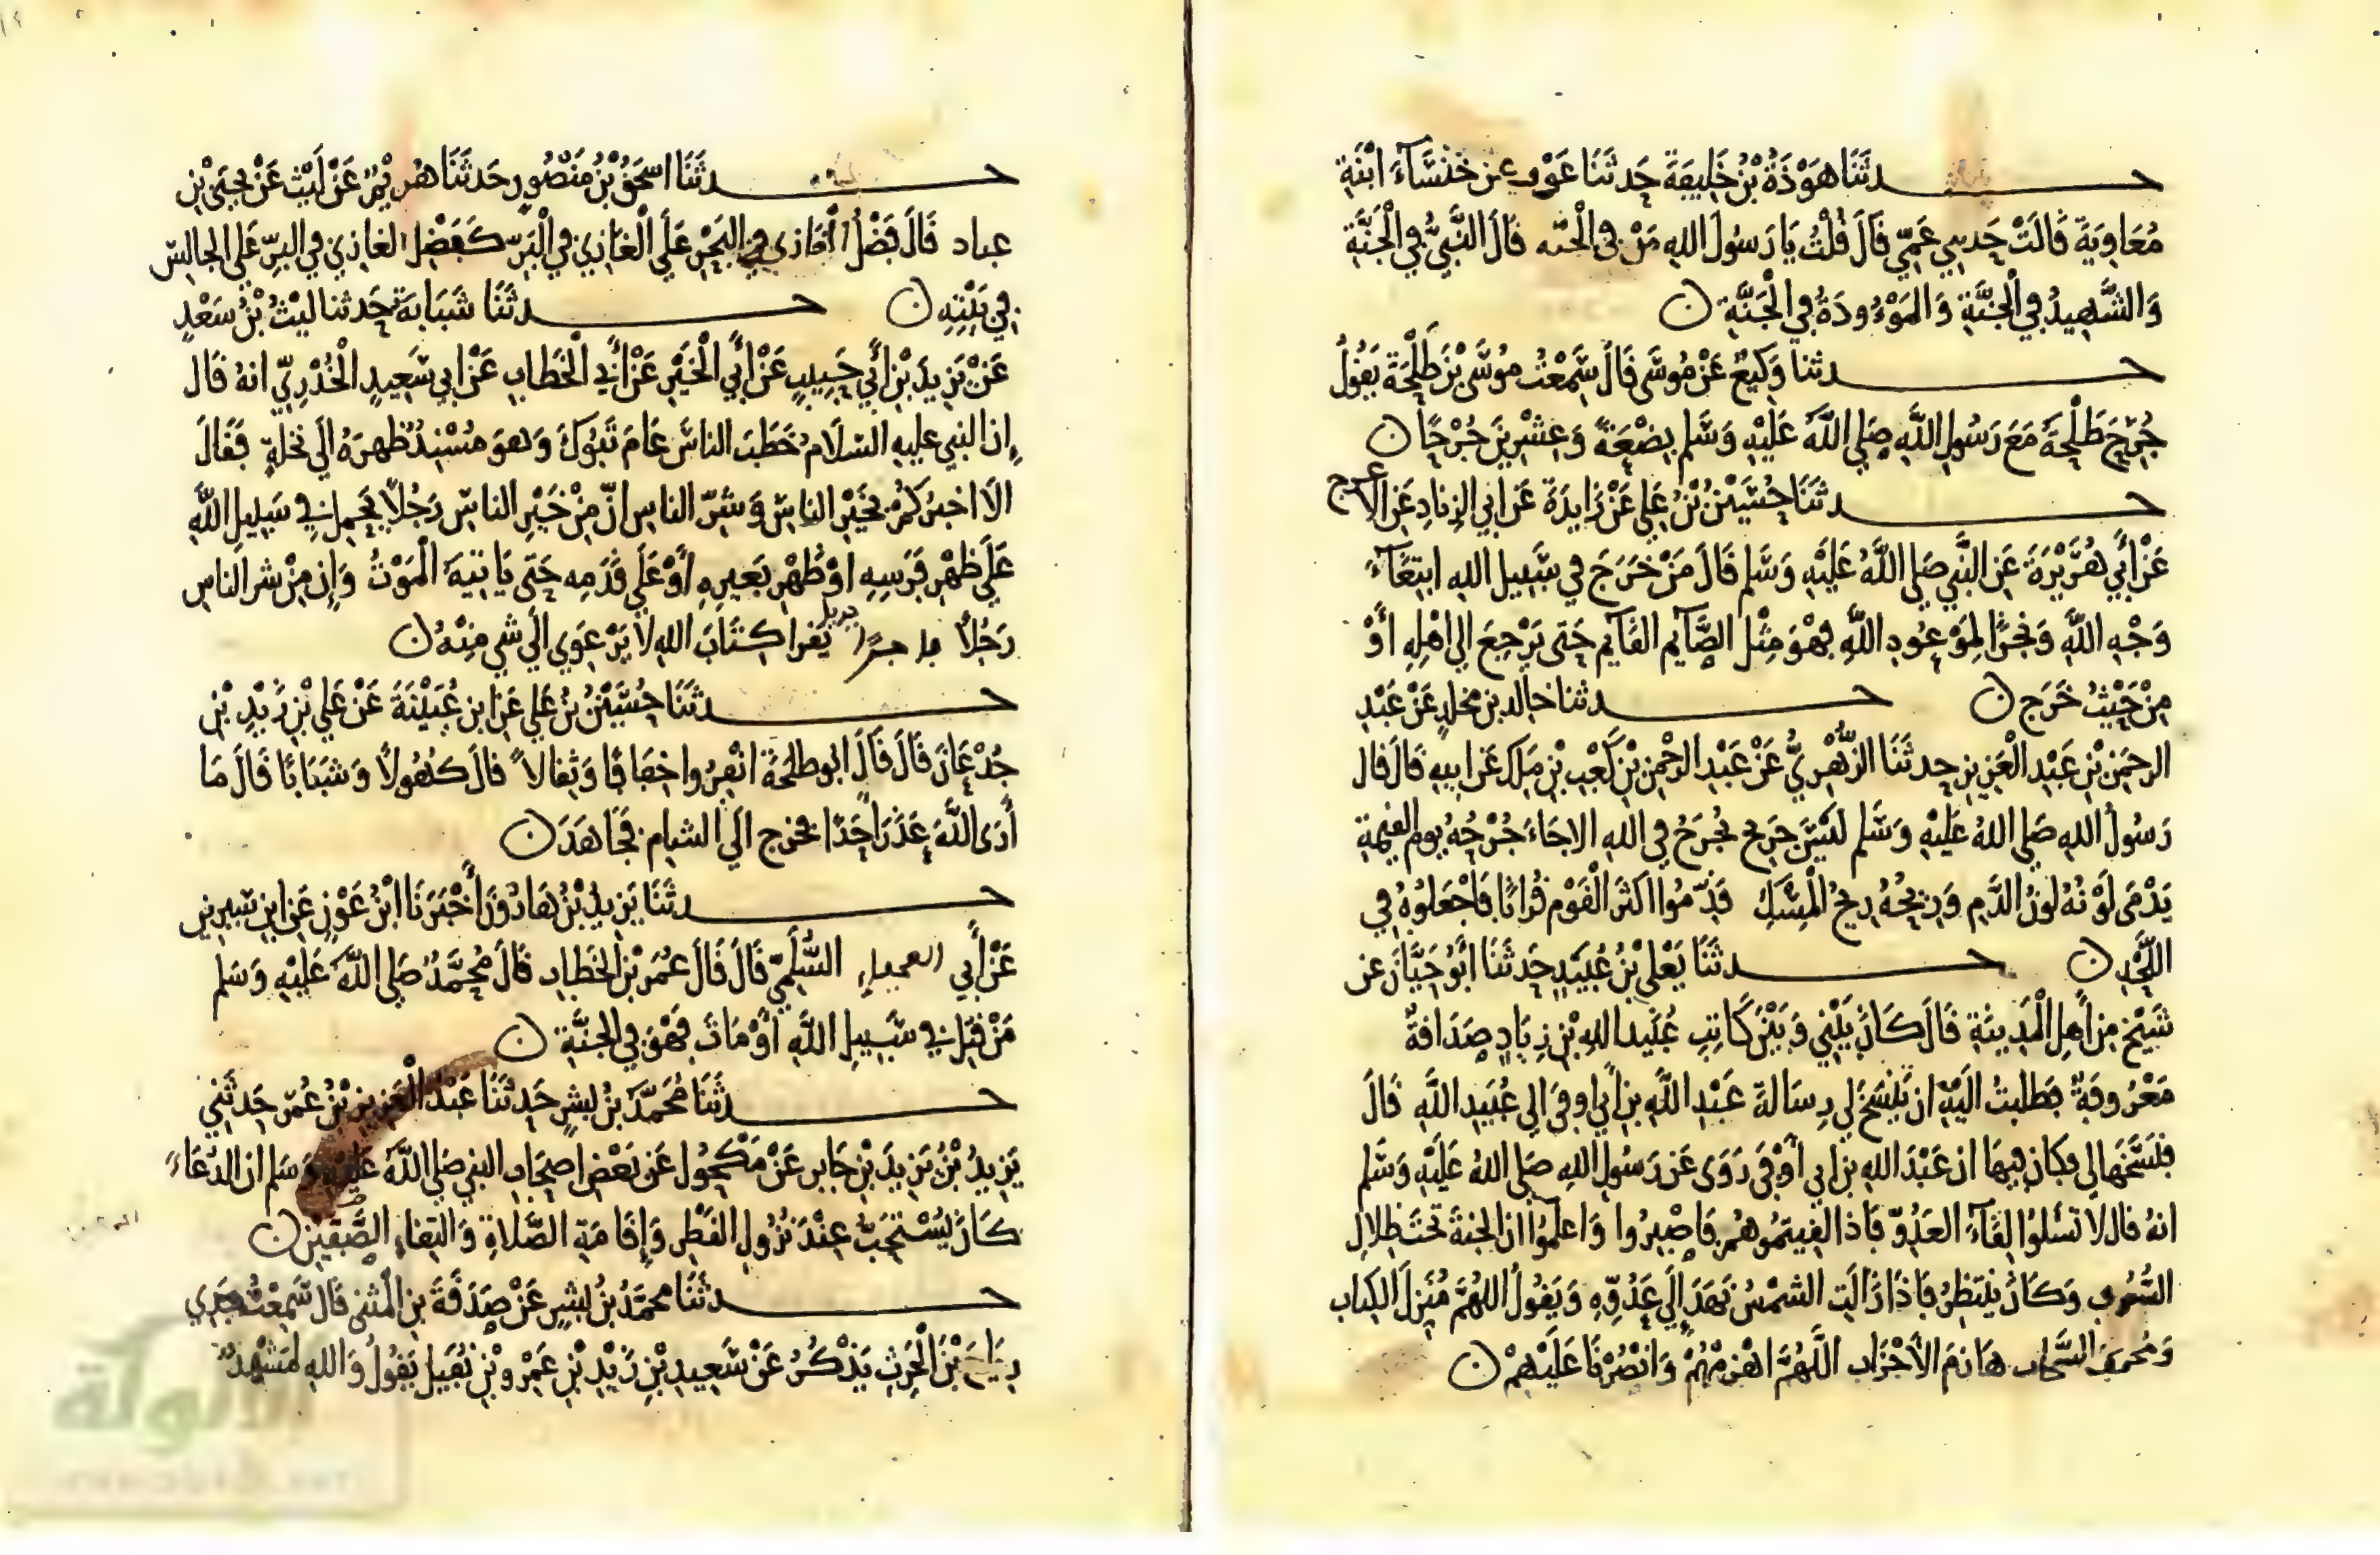 حدثنا هوذة بن خليفة حدثنا عوف عن خنساء ابنة
معاوية قالت حدثني عمي قال قلت يا رسول الله من في الجنه قال النبي في الجنة
والشهيد في الجنة والموءودة في الجنة ن
حدثنا وكيع عن موسى قال سمعت موسى بن طلحة يقول
جرح طلحة مع رسول الله صلى الله عليه وسلم بضعة وعشرين جرحا ن
حدثنا حسين بن علي عن زايدة عن ابي الزناد عن الاعرج
عن أبي هريرة عن النبي صلى الله عليه وسلم قال من خرج في سبيل الله ابتغاء
وجه الله وتنجزا لموعود الله فهو مثل الصايم القايم حتى يرجع الى اهله أو
من حيث خرج ن حدثنا خالد بن مخلد عن عبد
الرحمن بن عبد العزيز حدثنا الزهري عن عبد الرحمن بن كعب بن ملك عن ابيه قال قال
رسول الله صلى الله عليه وسلم ليس جريح يجرح في الله الا جاء جرحه يوم القيمة
يدمى لونه لون الدم وريحه ريح المسك قدموا اكثر القوم قرانا فاجعلوه في
اللحد ن حدثنا يعلى بن عبيد حدثنا ابو حيان عن
شيخ من أهل المدينة قال كان بيني وبين كاتب عبيد الله بن زياد صداقة
معروفة فطلبت اليه ان ينسخ لي رسالة عبد الله بن أبي اوفى الى عبيد الله قال
فنسخها لي فكان فيها ان عبد الله بن ابي أوفى روى عن رسول الله صلى الله عليه وسلم
انه قال لا تسلوا لقاء العدو فاذا لقيتموهم فاصبروا واعلموا ان الجنة تحت ظلال
السيوف وكان ينتظر فاذا زالت الشمس نهد إلى عدوه ويقول اللهم منزل الكتاب
ومجري السحاب هازم الأحزاب اللهم اهزمهم وانصرنا عليهم ن
حدثنا اسحق بن منصور حدثنا هريم عن ليث عن يحيى بن
عباد قال فضل الغازي في البحر على الغازي في البر كفضل الغازي في البر على الجالس
في بيته ن حدثنا شبابة حدثنا ليث بن سعد
عن يزيد بن أبي حبيب عن أبي الخير عن أبي الخطاب عن ابي سعيد الخدري انه قال
ان النبي عليه السلام خطب الناس عام تبوك وهو مسند ظهره الى نخلة فقال
الا اخبركم بخير الناس وشر الناس ان من خير الناس رجلا يحمل في سبيل الله
على ظهر فرسه او ظهر بعيره أو على قدمه حتى ياتيه الموت وان من شر الناس
رجلا يقرا كتاب الله لا يرعوي الى شي منه ن
حدثنا حسين بن علي عن ابن عيينة عن علي بن زيد بن
جدعان قال قال ابو طلحة انفروا خفافا وثقالا قال كهولا وشبابا قال ما
أرى الله عذر احدا فخرج الى الشام فجاهد ن
حدثنا يزيد بن هارون أخبرنا ابن عون عن ابن سيرين
عن أبي العجفاء السلمي قال قال عمر بن الخطاب قال محمد صلى الله عليه وسلم
من قتل في سبيل الله أو مات فهو في الجنة ن
حدثنا محمد بن بشر حدثنا عبد العزيز بن عمر حدثني
يزيد بن يزيد بن جابر عن مكحول عن بعض اصحاب النبي صلى الله عليه وسلم ان الدعاء
كان يستحب عند نزول القطر وإقامة الصلاة والتقاء الصفين ن
حدثنا محمد بن بشر عن صدقة بن المثنى قال سمعت جدي
رياح بن الحرث يذكر عن سعيد بن زيد بن عمرو بن نفيل يقول والله لمشهد
الألوكة